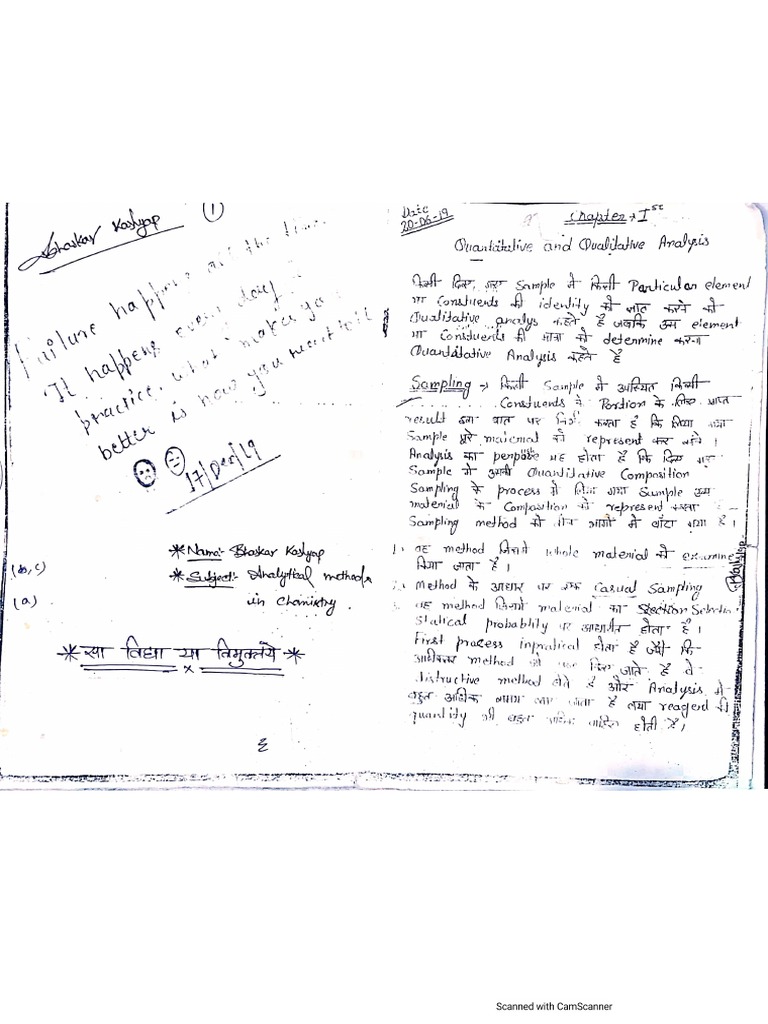 Bhaskar Kashyap
1
Failure happens all the time.
It happens every day
practice. what makes you
better is how you react
17/Dec/19
(b,c)
(a)
*Name:- Bhaskar Kashyap
*Subject:- Analytical methods
in Chemistry.
*सा विद्या या विमुक्तये*
Date
20-06-19
Chapter → Ist
Quantatative and Qualitative Analysis
किसी दिए गए Sample में किसी Particular element
या Constuents की identity को ज्ञात करने को
Qualitative analys कहते है जबकि उस element
या Constuents की मात्रा को determine करना
Quantatative Analysis कहते है
Sampling → किसी Sample में उपस्थित किसी
Constuents के Portion के लिए प्राप्त
result इस बात पर निर्भर करता है कि लिया गया
Sample पूरे material को represent कर सके।
Analysis का perpose यह होता है कि दिए गए
Sample में उसकी Quantitative Composition
Sampling के process में लिया गया Sample उस
material के Composition को represent करता
Sampling method को तीन भागों में बाँटा गया है।
1. वह method जिसमें whole material को examine
किया जाता है।
2. Method के आधार पर एक Casual Sampling
3. वह method जिसमें material का Selection
Statical probablity पर आधारित होता है।
First process impratical होता है क्यों कि
अधिकतर method जो use किए जाते है वे
distructive method होते है और Analysis में
बहुत अधिक समय लग जाता है तथा reagent की
quantity भी बहुत अधिक चाहिए होती है।
Scanned with CamScanner